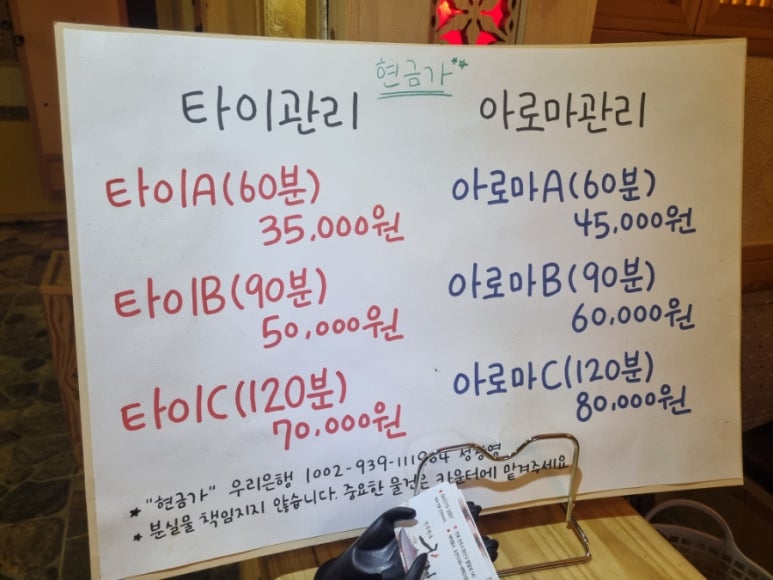 현금가**
타이관리
아로마관리
타이A(60분)
35,000원
타이B(90분)
50,000원
타이C(120분)
70,000원
아로마A(60분)
45,000원
아로마B(90분)
60,000원
아로마C(120분)
80,000원
* "현금가" 우리은행 1002-939-111964
* 분실물 책임지지 않습니다. 중요한 물건은 카운터에 맡겨주세요